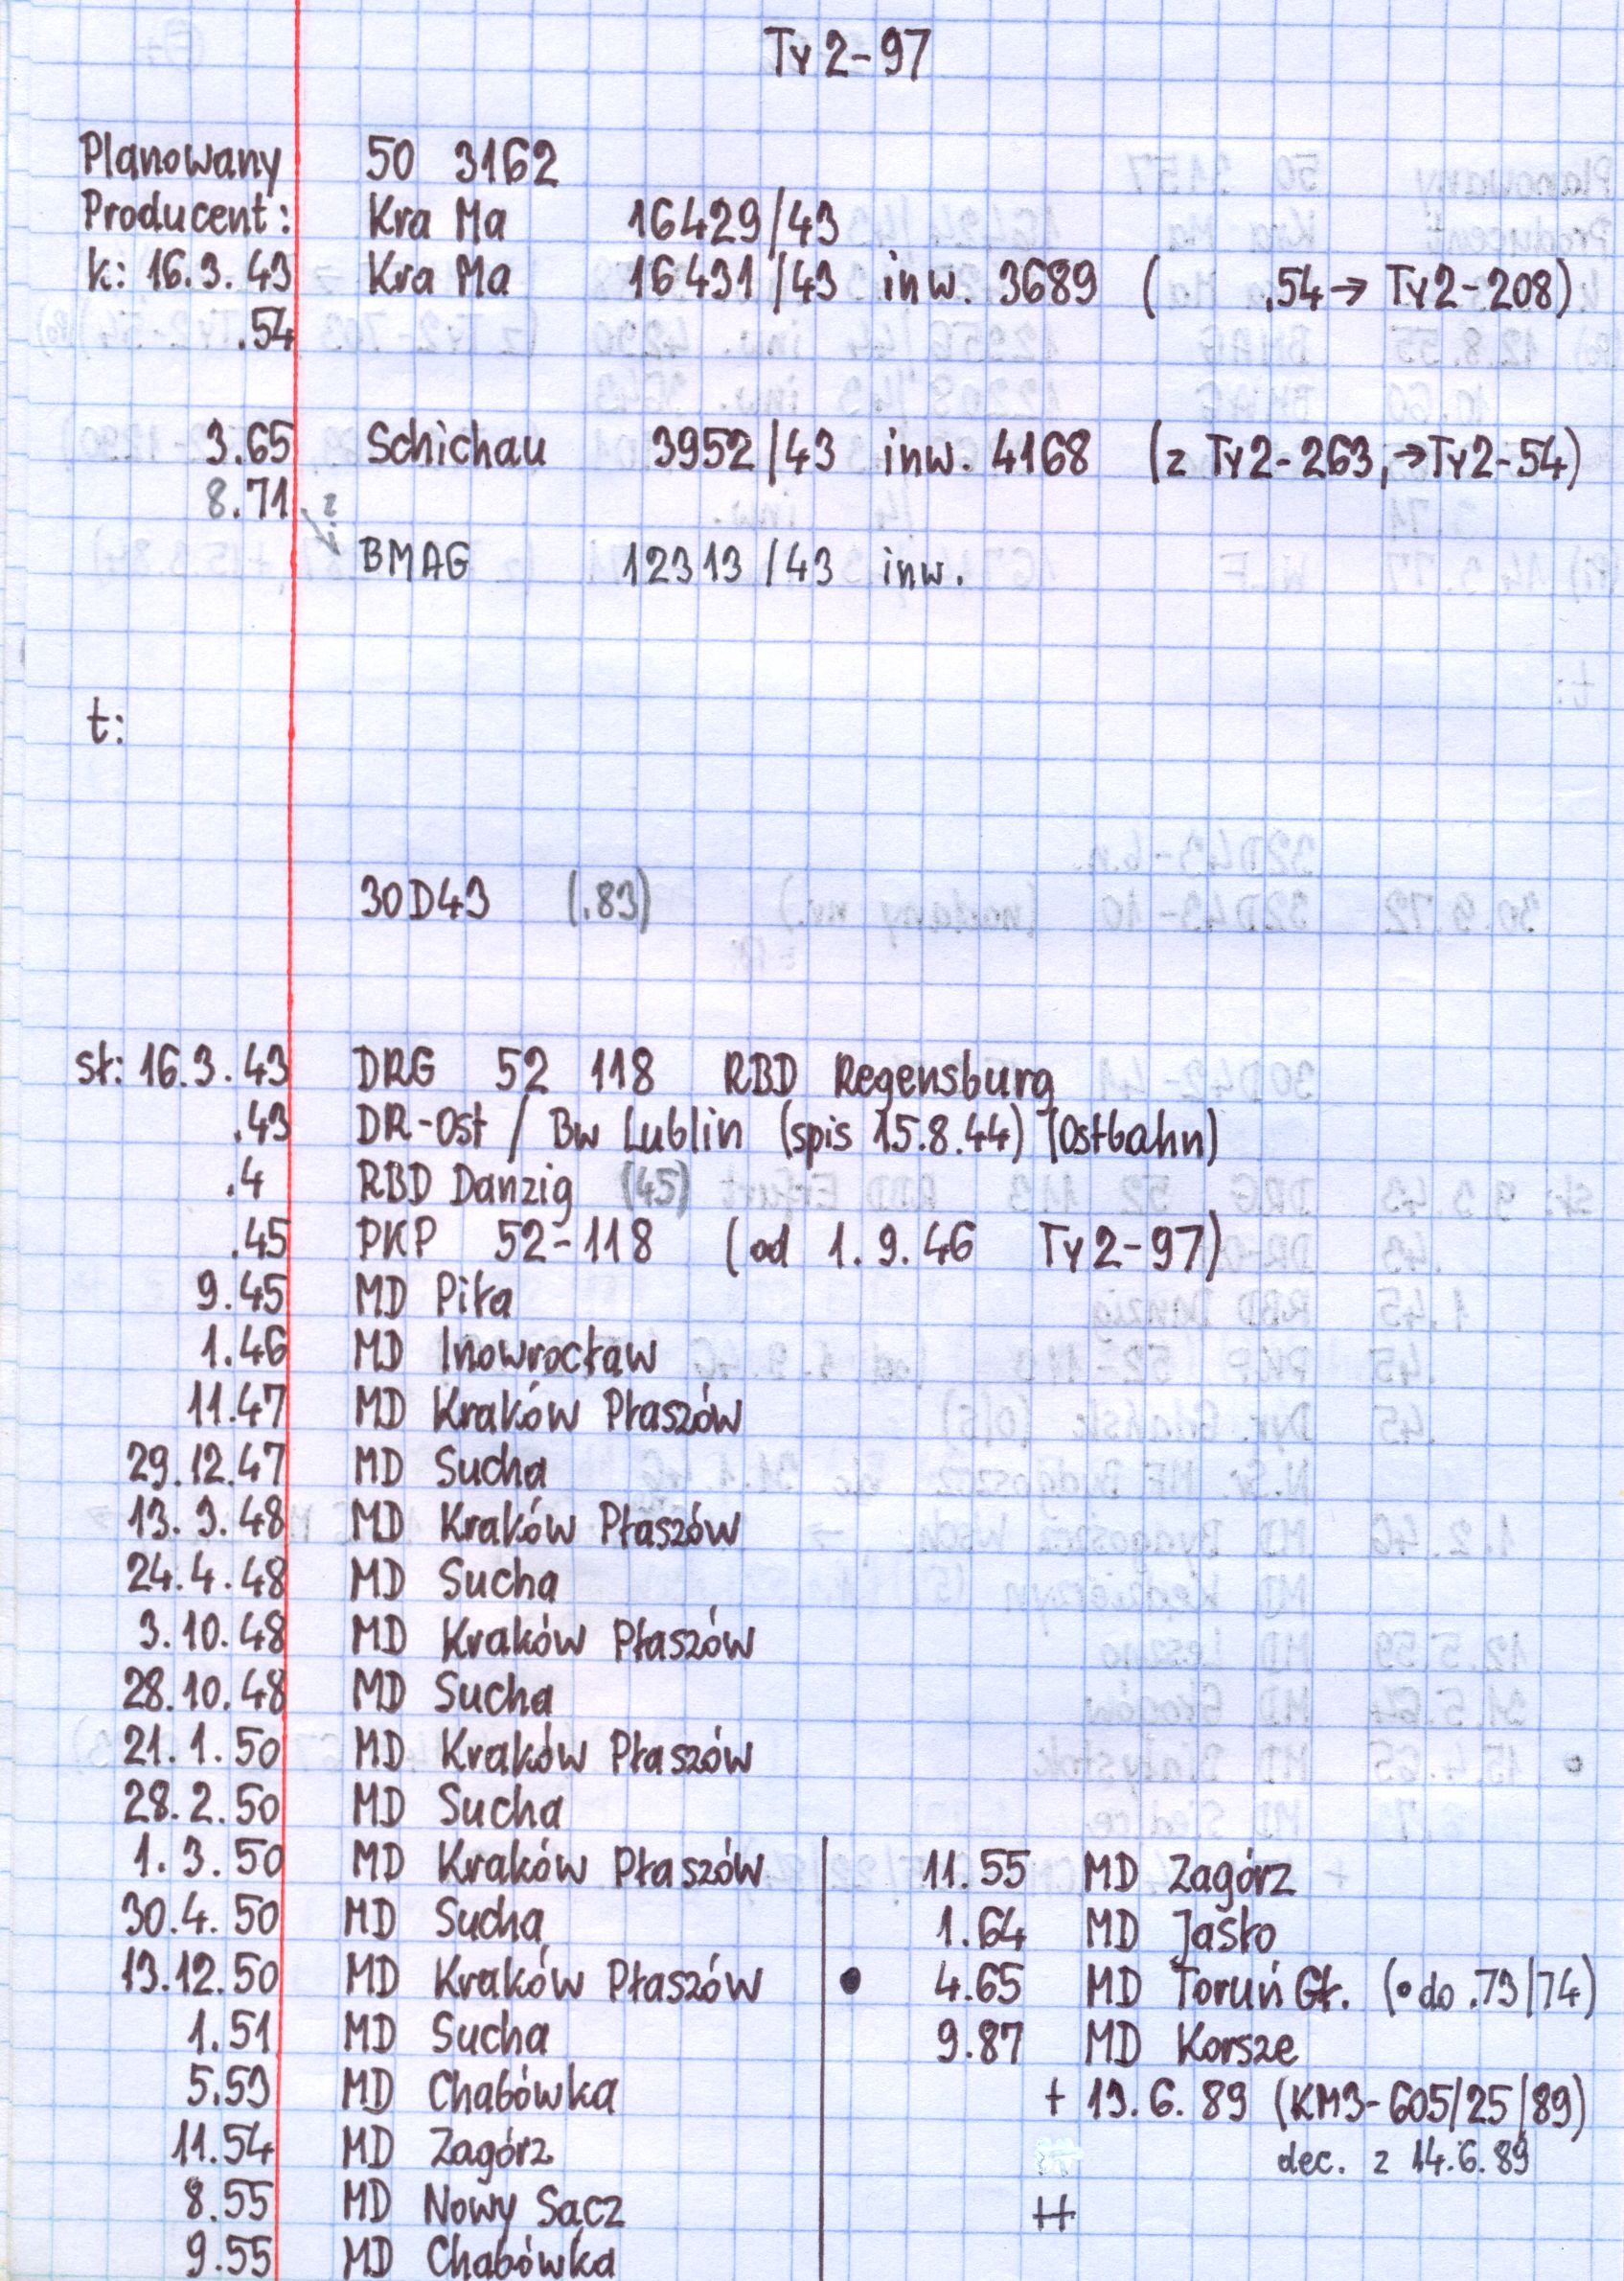 Ty2-97
Planowany 50 3162
Producent: Kra Ma 16429/43
k: 16.3.43 Kra Ma 16431/43 inw. 3689 ( .54→ Ty2-208)
.54
3.65 Schichau 3952/43 inw. 4168 (z Ty2-263,→Ty2-54)
8.71 ?
BMAG 12313/43 inw.
t:
30D43 (.83)
st: 16.3.43 DRG 52 118 RBD Regensburg
.43 DR-Ost / Bw Lublin (spis 15.8.44) (Ostbahn)
.4 RBD Danzig (45)
.45 PKP 52-118 (od 1.9.46 Ty2-97)
9.45 MD Piła
1.46 MD Inowrocław
11.47 MD Kraków Płaszów
29.12.47 MD Sucha
13.3.48 MD Kraków Płaszów
24.4.48 MD Sucha
3.10.48 MD Kraków Płaszów
28.10.48 MD Sucha
21.1.50 MD Kraków Płaszów
28.2.50 MD Sucha
1.3.50 MD Kraków Płaszów
30.4.50 MD Sucha
13.12.50 MD Kraków Płaszów
1.51 MD Sucha
5.53 MD Chabówka
11.54 MD Zagórz
8.55 MD Nowy Sącz
9.55 MD Chabówka
11.55 MD Zagórz
1.64 MD Jasło
• 4.65 MD Toruń Gł. (• do .73/74)
9.87 MD Korsze
+ 13.6.89 (KM3-605/25/89)
dec. z 14.6.89
++